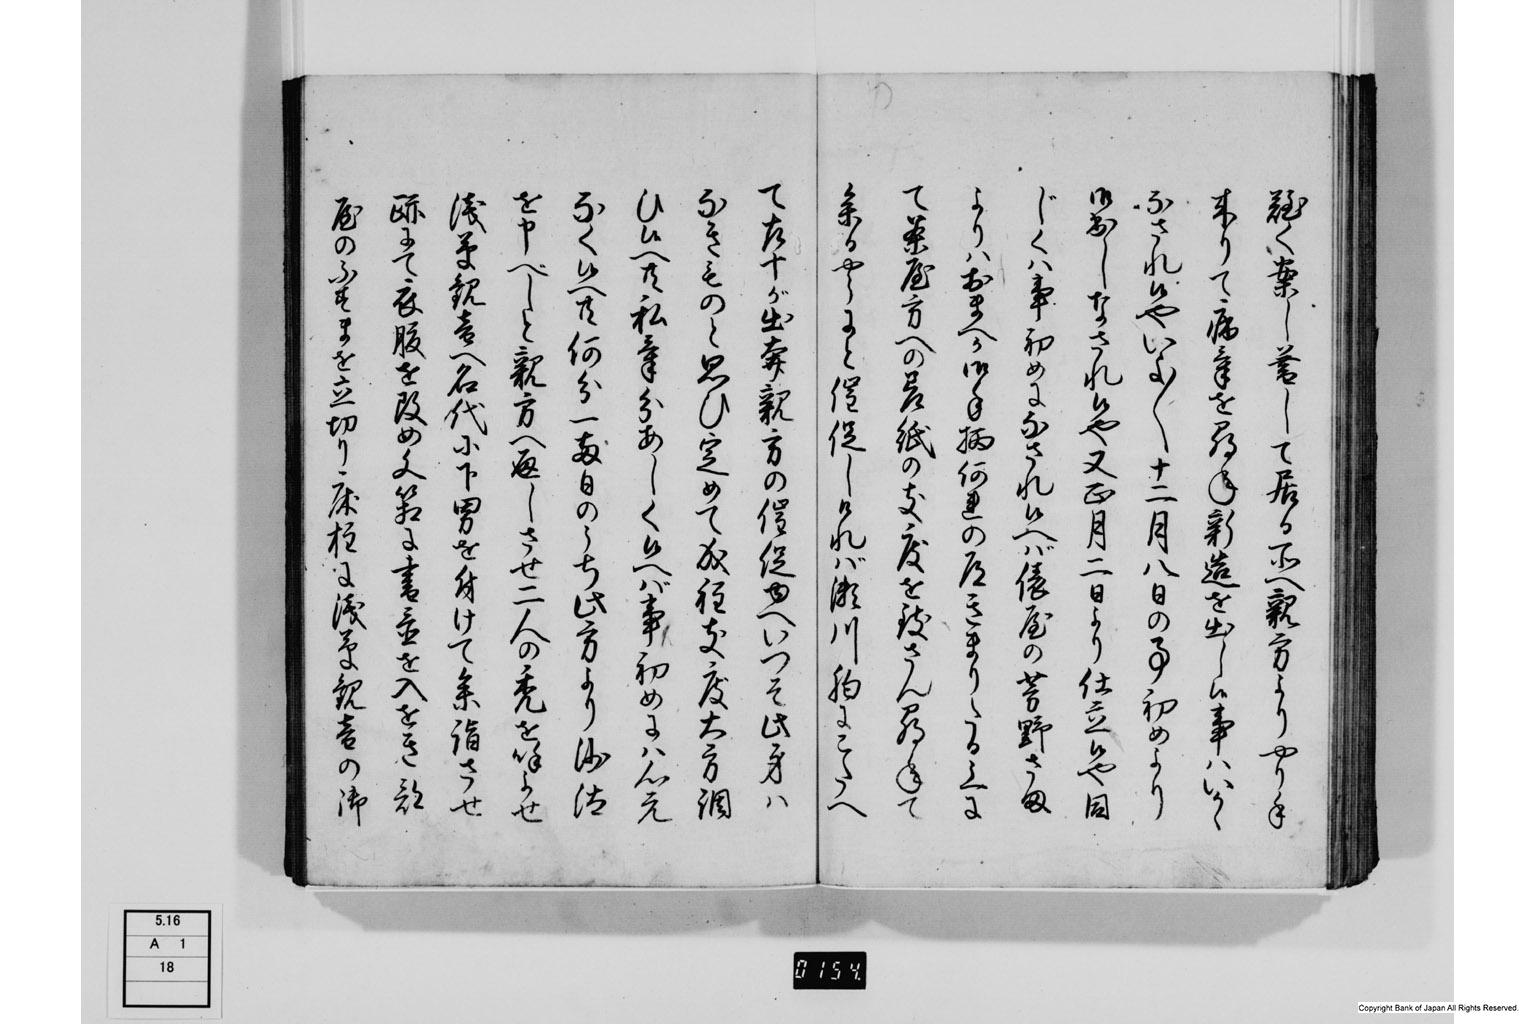 難く案し暮して居る所へ親方よりやりて
来りて病気を尋ね新造を出し候事ハいかゝ
なされ候やいよ〱十二月八日の事初めより
御出しなされ候や又正月二日より仕立候や同
じくハ事初めになされ候へば俵屋の芳野さ
よりハおまへが御手柄何連の
て茶屋方への巻紙の支度を致さん尋ねて
参るやうにと催促しけれバ瀬川胸にこたへ
て友十が出奔親方の催促ゆへいつそ此身ハ
なきものと思ひ定めて成程支度大方調
ひ候へ共私気分あしく候へば事初めにハ心元
なく候へ共何分一両日のうち此方より沙汰
を申べしと親方へ返しさせ二人の禿を呼よせ
浅草観音へ名代に下男を付けて参詣させ
跡にて衣服を改め文箱に書置を入をき部
屋のふすまを立切り床柱に浅草観音の御
5.16
A 1
18
0154
Copyright Bank of Japan All Rights Reserved.